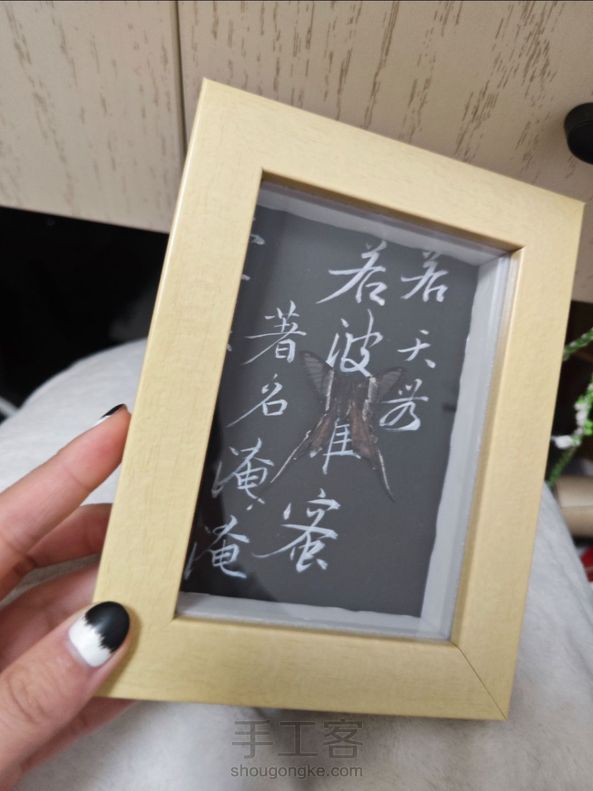 若天
若波蜜
著名淹淹
手工客
shougongke.com